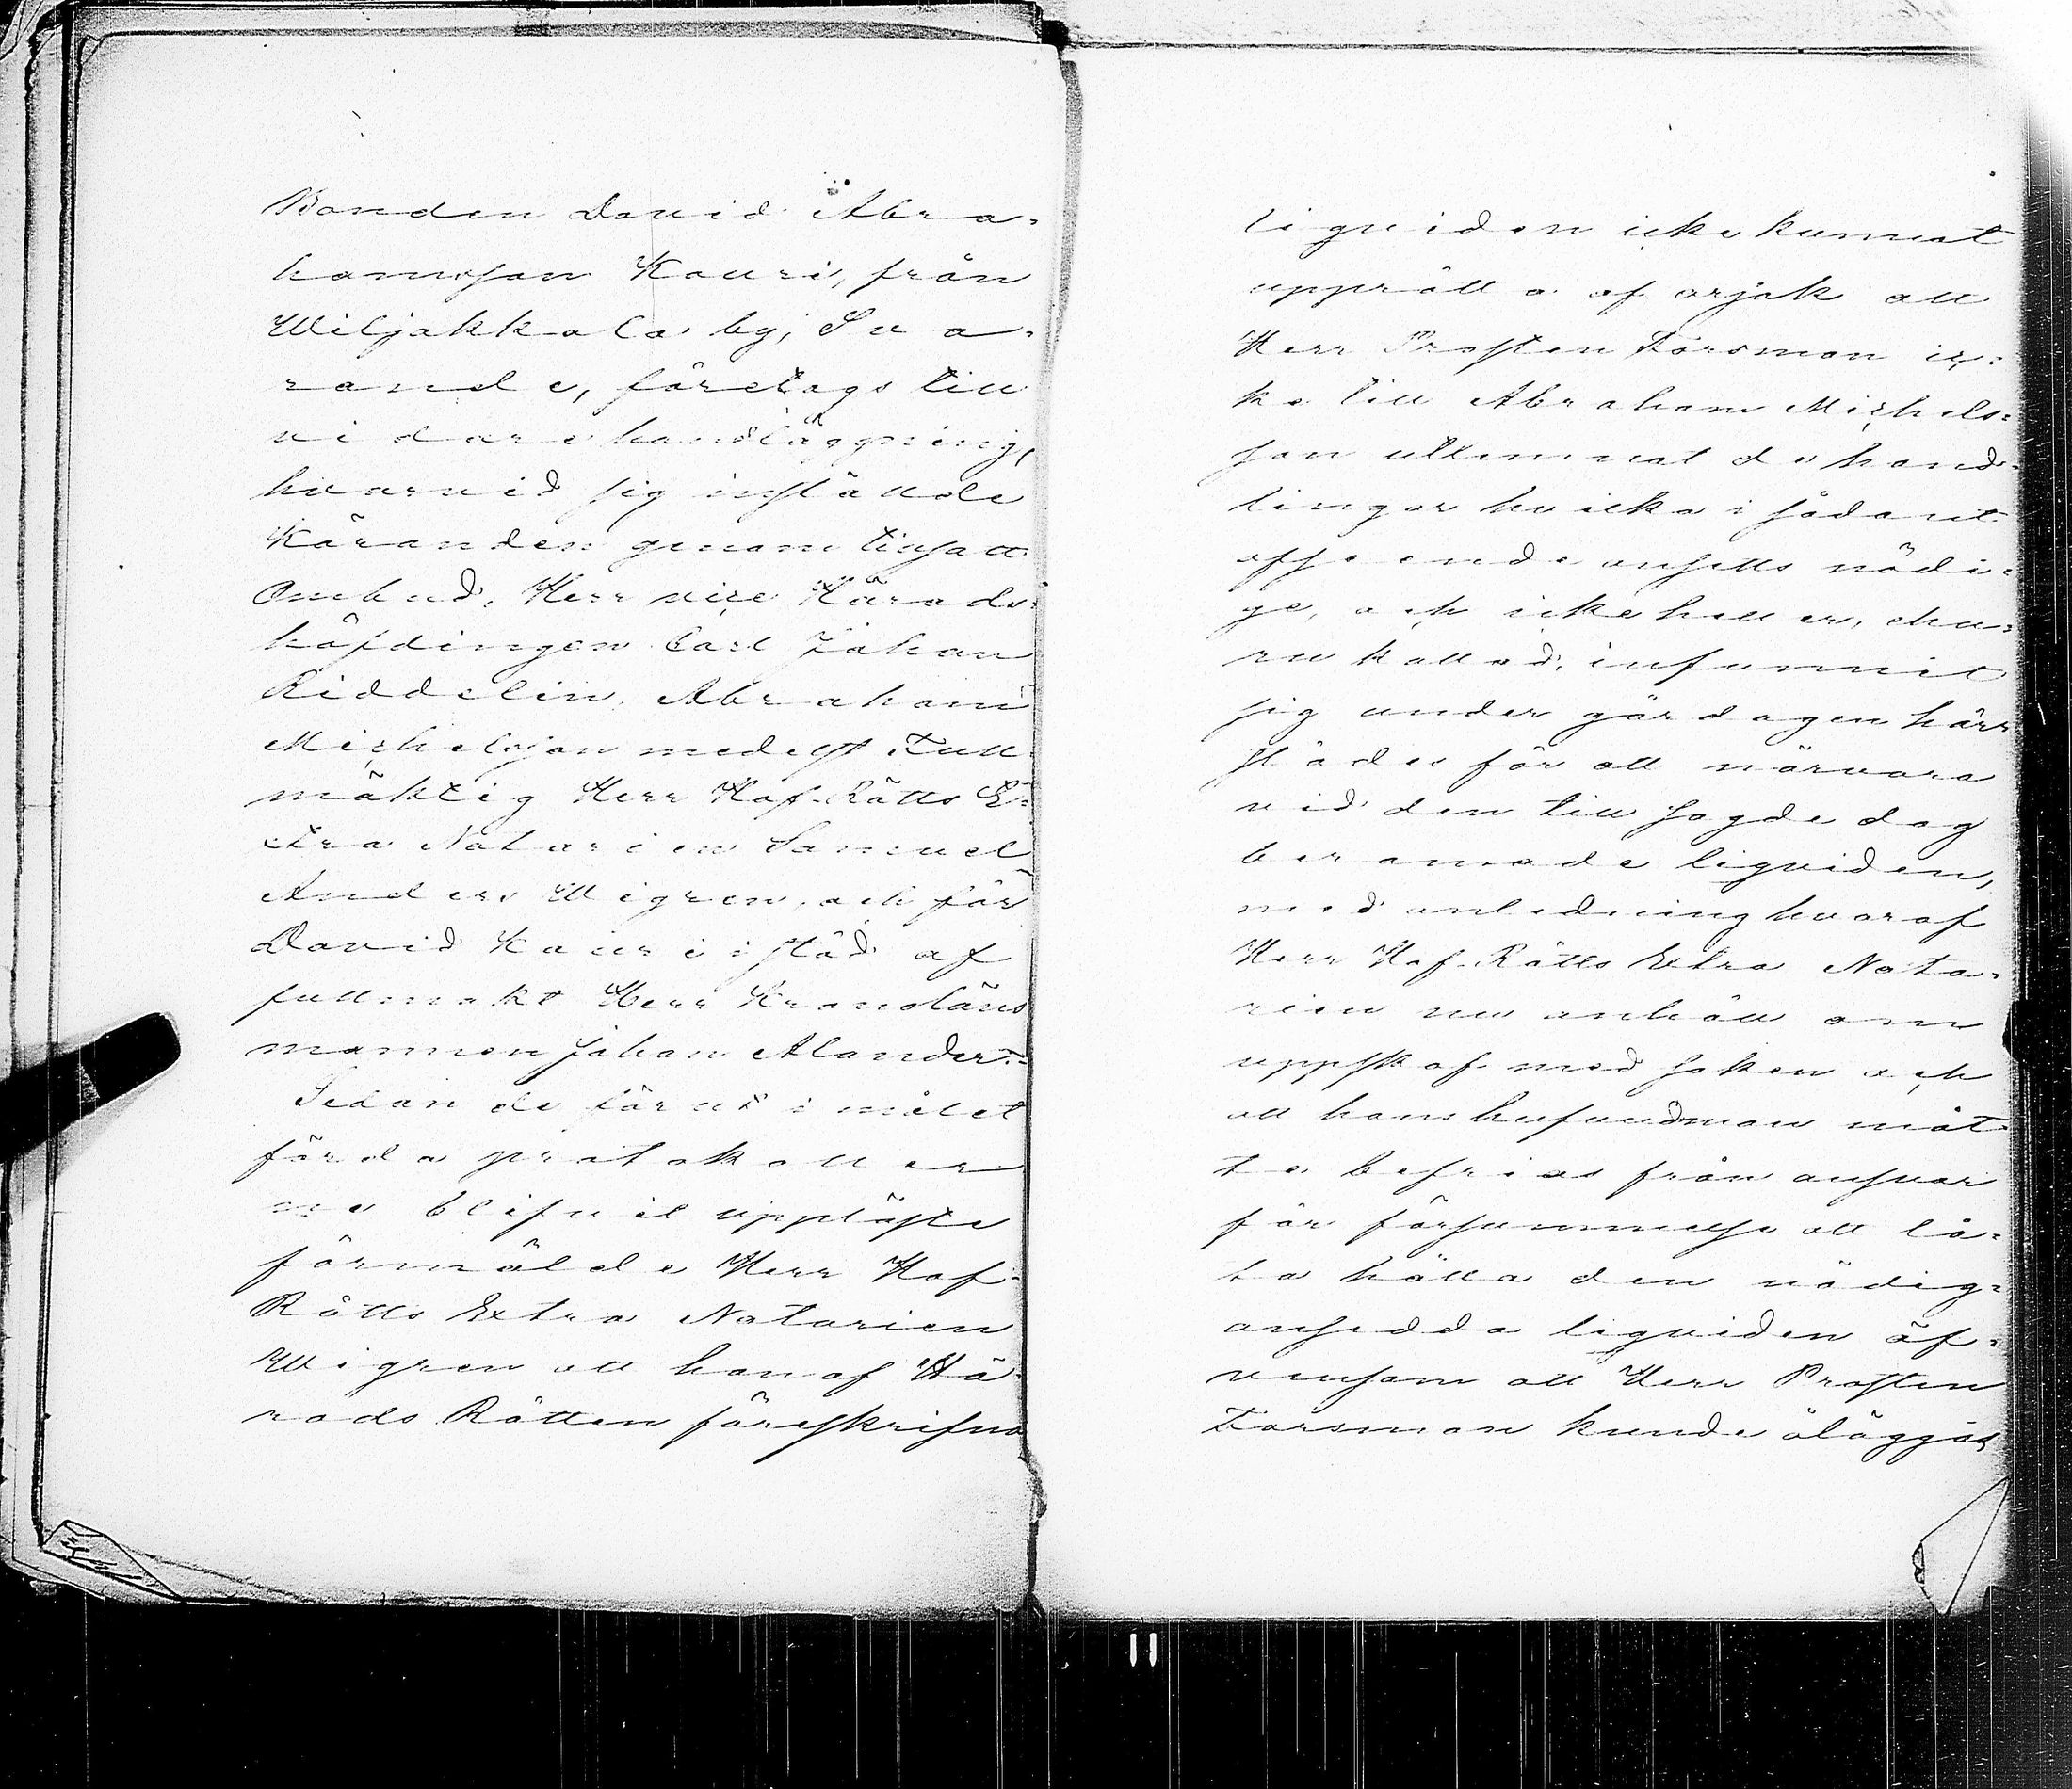 Bonden David Abra-
hamsson Kauri, från
Wiljakkala by, Sva-
rande, företogs till
vidare handläggning,
hvarvid sig instälde
Käranden genom tilsatt
Ombud, Herr vice Härads-
höfdingen Carl Johan
Riddelin, Abraham
Michelsson medelst Full-
mäktig Herr Hof-Rätts E-
xtra Notarien Samuel
Anders Wigren, och för
David Kauri i stöd af
fullmakt Herr Kronoläns
mannen Johan Alander.-
Sedan de förut i målet
förda protokoller
na blifvit uppläste
förmälde Herr Hof-
Rätts Extra Notarien
Wigren att han af Hä-
rads Rätten föreskrifna
liqviden icke kunnat
upprätta af orsak att
Herr Prosten Forsman ic-
ke till Abraham Michels-
son utlemnat de hand-
lingar hvilka i sådant
afseende ansetts nödi-
ge, och icke heller, ehu-
ru kallad, infunnit
sig under gårdagen här-
städes för att närvara
vid den till sagde dag
beramade liqviden,
med anledning hvaraf
Herr Hof-Rätts Extra Nota-
rien nu anhöll om
uppskof med saken och
att hans hufvudman måt
te befrias från ansvar
för försummelse att lå-
ta hålla den nödig-
ansedda liqviden äf-
vensom att Herr Prosten
Forsman kunde åläggas
11